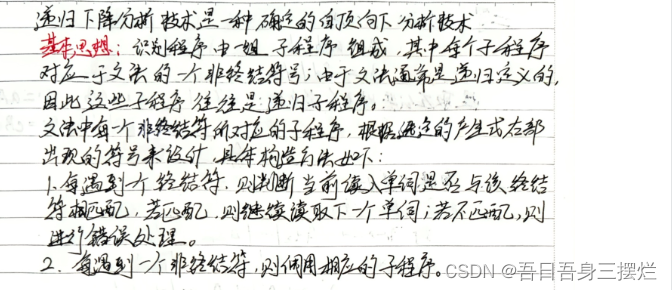 递归下降分析技术是一种确定的自顶向下分析技术
基本思想：识别程序由一组子程序组成，其中每个子程序
对应于文法的一个非终结符号；由于文法通常是递归定义的，
因此这些子程序往往是递归子程序。
文法中每个非终结符所对应的子程序，根据相应的产生式右部
出现的符号来设计，具体构造方法如下：
1. 每遇到个终结符，则判断当前读入单词是否与该终结
符相匹配，若匹配，则继续读取下一个单词；若不匹配，则
进行错误处理。
2. 每遇到一个非终结符，则调用相应的子程序。
CSDN @吾目吾身三摆烂